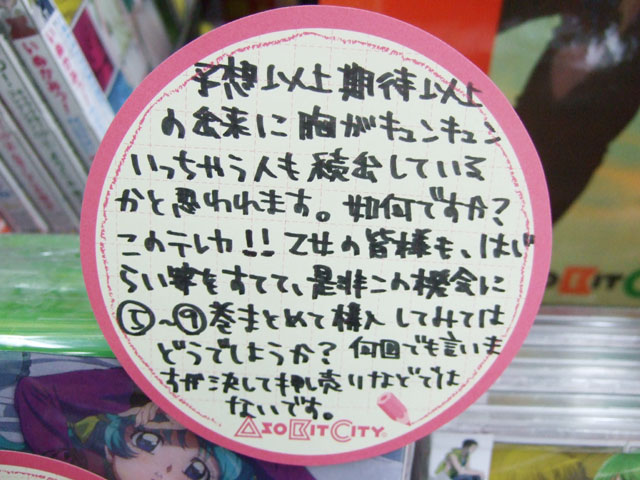 予想以上期待以上
の出来に胸がキュンキュン
いっちゃう人も続出している
かと思われます。如何ですか?
このテレカ!!乙女の皆様も、はじ
らい等をすてて、是非この機会に
⑤~⑨巻まとめて購入してみては
どうでしょうか?何回でも言いま
すが決して押し売りなどでは
ないです。
ASOBITCITY
BITCITY